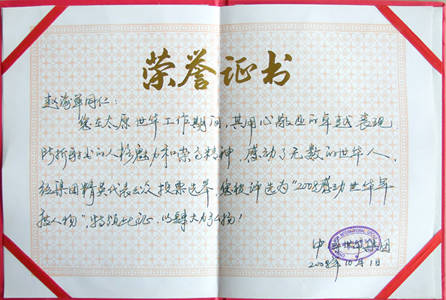 荣誉证书
赵海军同仁：
您在太原世华工作期间，其用心敬业的卓越表现
所折射出的人格魅力和崇高精神，感动了无数的世华人，
经集团精英代表公众投票选举，您被评选为“2008感动世华年
度人物”，特颁此证，以肆大力了扬！
中 世华集团
2008年10月1日